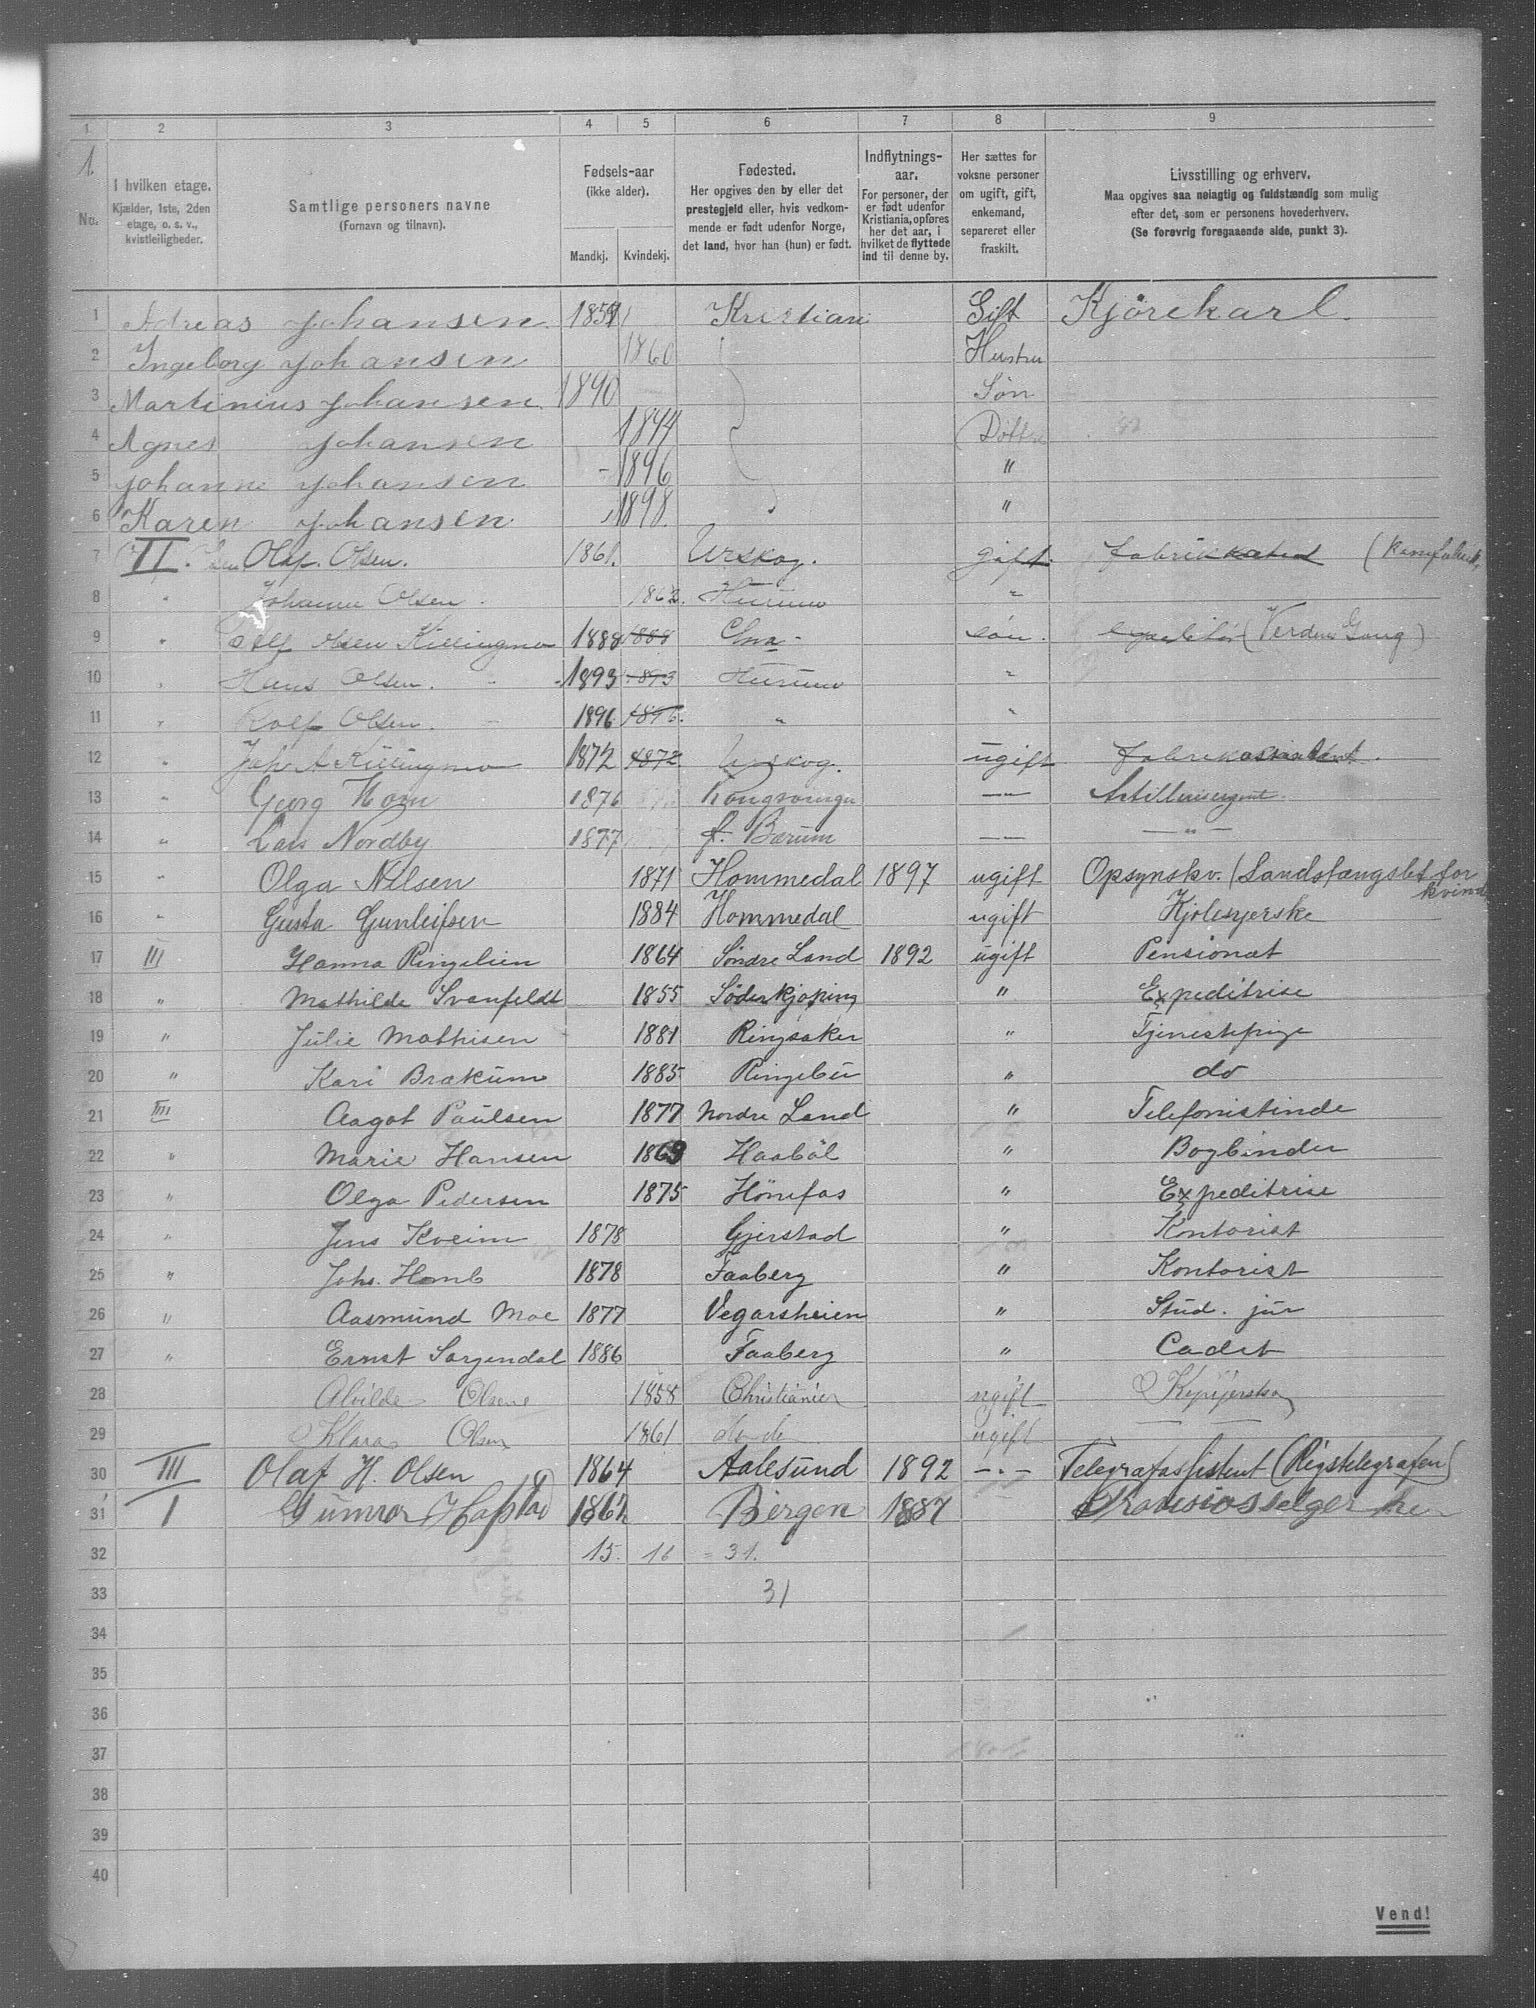 1 2 3 4 5 6 7 8 9
1.
No.
I hvilken etage.
Kjælder, 1ste, 2den
etage, o. s. v.,
kvistleiligheder.
Samtlige personers navne
(Fornavn og tilnavn).
Fødsels-aar
(ikke alder).
Mandkj. Kvindekj.
Fødested.
Her opgives den by eller det
prestegjeld eller, hvis vedkom-
mende er født udenfor Norge,
det land, hvor han (hun) er født.
Indflytnings-
aar.
For personer, der
er født udenfor
Kristiania, opføres
her det aar, i
hvilket de flyttede
ind til denne by.
Her sættes for
voksne personer
om ugift, gift,
enkemand,
separeret eller
fraskilt.
Livsstilling og erhverv.
Maa opgives saa nøiagtig og fuldstændig som mulig
efter det, som er personens hovederhverv.
(Se forøvrig foregaaende side, punkt 3).
1 Adreas Johansen Kristiani Gift Kjörekarl.
2 Ingeborg Johansen 1860 Hustru
3 Martinius Johansen 1890 Søn
4 Agnes Johansen 1894
5 Johanne Johansen 1896 "
6 Karen Johansen 1898 "
7 II. Olaf Olsen. 1861. Urskog. gift
8 " Johanne Olsen 1862. Hurum "
9 " Alf Olsen Killingmo 1888 1888 søn. (Verdens Gang)
10 " Hans Olsen. 1893 1893 Hurum "
11 " Rolf Olsen. 1896 1896. " "
12 " Joh. A Killingmo 1872 1872 Urskog. ugift fabrikassistent.
13 " Georg Horn 1876 Kongsvinger — " — Artillerisergent.
14 " Lars Nordby 1877 Bærum — — — " —
15 " Olga Nilsen 1871 Hommedal 1897 ugift Opsynskv. (Landsfængslet for
kvind
16 " Gusta Gunleifsen 1884 Hommedal ugift Kjolesyerske
17 III Hanna Ringelien 1864 Søndre Land 1892 ugift Pensionat
18 " Mathilde Svanfeldt 1855 Söderkjöping " Expeditrise
19 " Julie Mathisen 1881 Ringsaker " Tjenestepige
20 " Kari Brækum 1885 Ringebu " do
21 III Aagot Paulsen 1877 Nordre Land " Telefonistinde
22 " Marie Hansen 1869 Haaböl " Bogbinder
23 " Olga Pedersen 1875 Hönefos " Expeditrise
24 " Jens Kveim 1878 Gjerstad " Kontorist
25 " Johs. Homb 1878 Faaberg " Kontorist
26 " Aasmund Moe 1877 Vegarsheien " Stud. jur
27 " Ernst Sorgendal 1886 Faaberg " Cadet
28 Alvilde Olsen 1858 Christiania ugift
29 Klara Olsen 1861 ugift — —
30 III Olaf H. Olsen 1864 Aalesund 1892 — " — Telegrafassistent (Rigstelegrafen)
31 I Gunvor 1862 Bergen 1887
32 15. 16 = 31.
33 31
34
35
36
37
38
39
40
Vend!